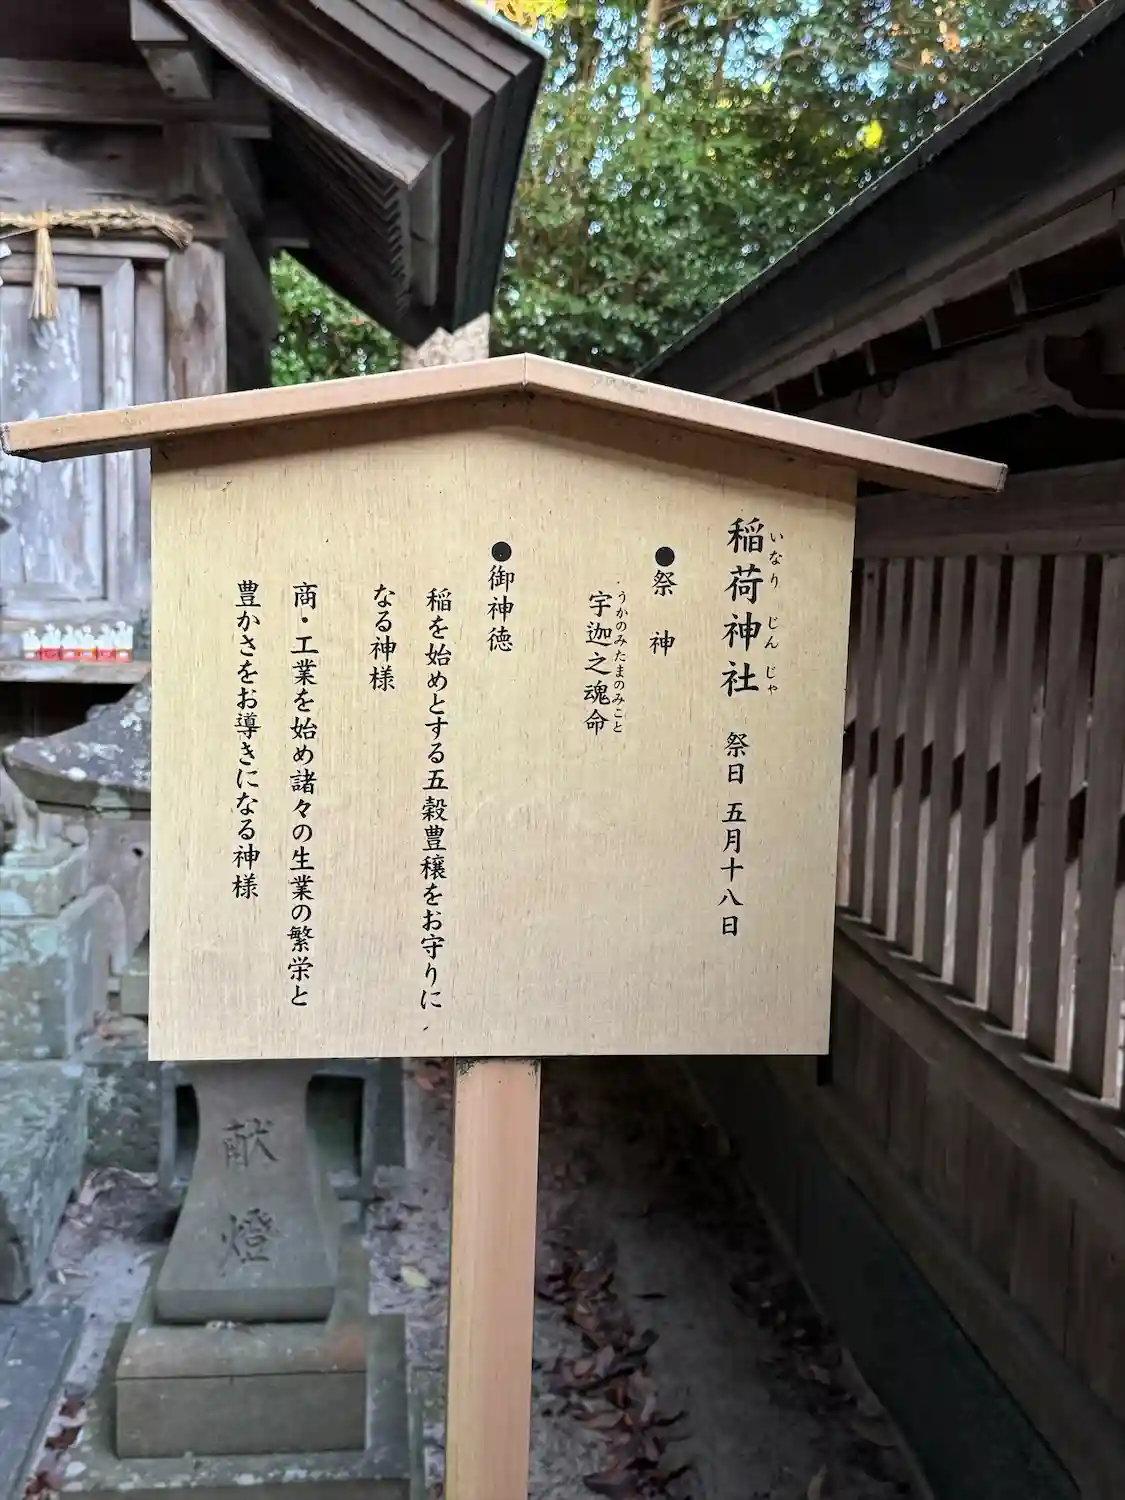 稲荷神社 祭日 五月十八日
いなり じんじゃ
●祭 神
宇迦之魂命
うかのみたまのみこと
●御神徳
稲を始めとする五穀豊穣をお守りに
なる神様
商・工業を始め諸々の生業の繁栄と
豊かさをお導きになる神様
献燈